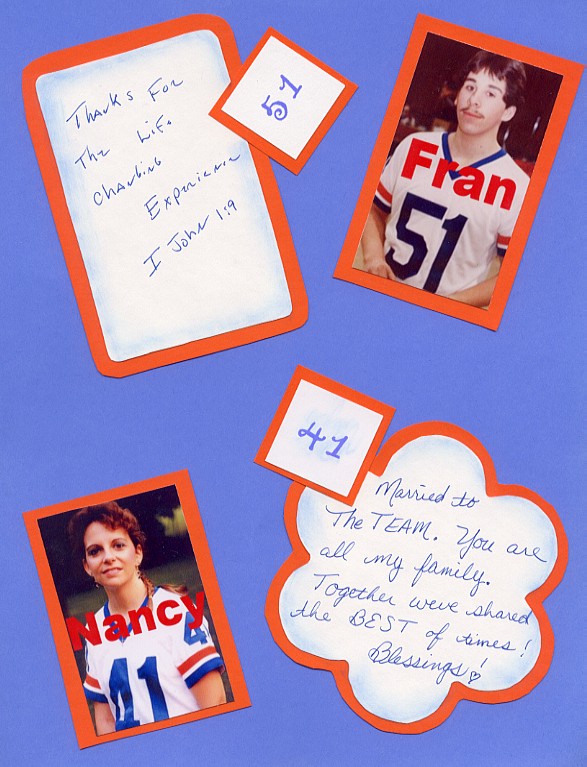 Thanks For
The Life
Changing
Experience
I John 1:9
51
Fran
51
41
Married to
The TEAM. You are
all my family.
Together weve shared
the BEST of times!
Blessings!
Nancy
41
4